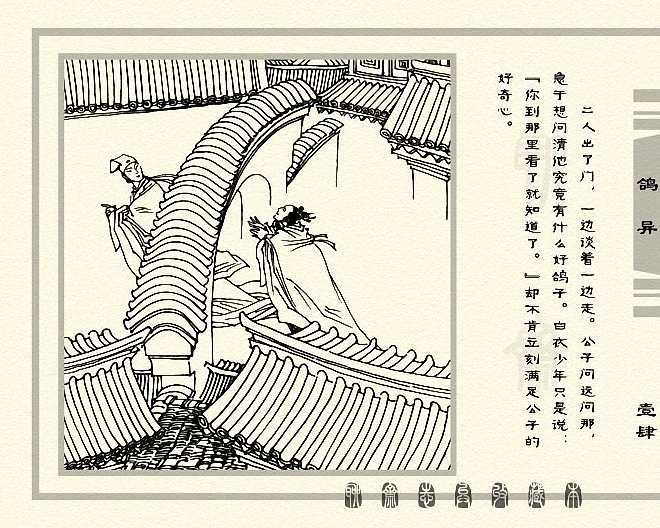 二人出了门，一边谈着一边走。公子问这问那，
急于想问清他究竟有什么好鸽子。白衣少年只是说：
『你到那里看了就知道了。』却不肯立刻满足公子的
好奇心。
鸽异
壹肆
聊斋志异收藏本